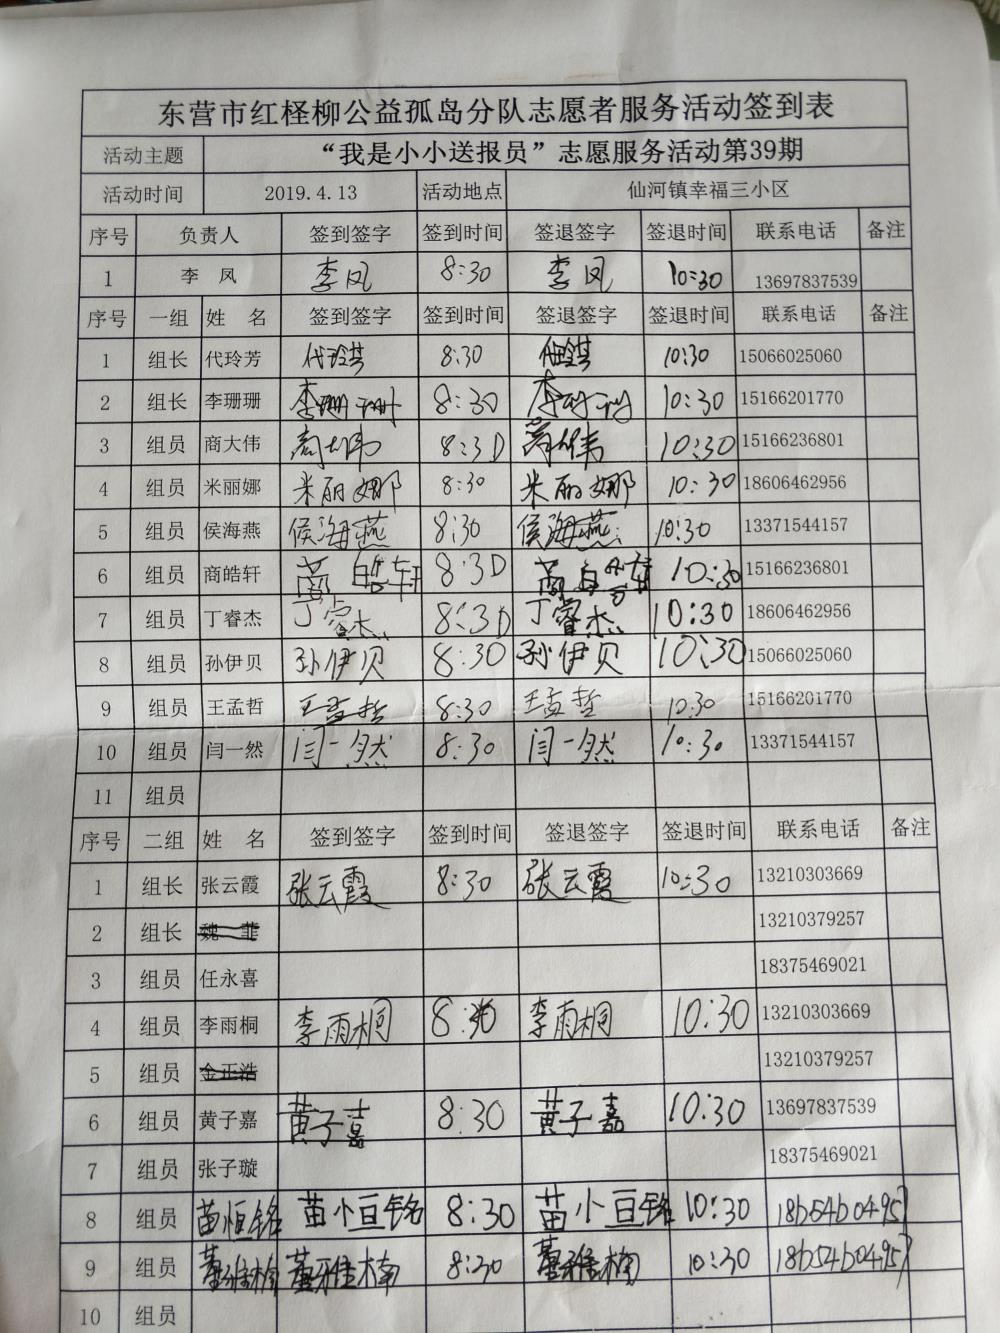 东营市红柽柳公益孤岛分队志愿者服务活动签到表
活动主题 “我是小小送报员”志愿服务活动第39期
活动时间 2019.4.13 活动地点 仙河镇幸福三小区
序号 负责人 签到签字 签到时间 签退签字 签退时间 联系电话 备注
1 李 凤 李凤 8:30 李凤 10:30 13697837539
序号 一组 姓 名 签到签字 签到时间 签退签字 签退时间 联系电话 备注
1 组长 代玲芳 代玲芳 8:30 代玲芳 10:30 15066025060
2 组长 李珊珊 李珊珊 8:30 李珊珊 10:30 15166201770
3 组员 商大伟 商大伟 8:30 商大伟 10:30 15166236801
4 组员 米丽娜 米丽娜 8:30 米丽娜 10:30 18606462956
5 组员 侯海燕 侯海燕 8:30 侯海燕 10:30 13371544157
6 组员 商皓轩 商皓轩 8:30 商皓轩 10:30 15166236801
7 组员 丁睿杰 丁睿杰 8:30 丁睿杰 10:30 18606462956
8 组员 孙伊贝 孙伊贝 8:30 孙伊贝 10:30 15066025060
9 组员 王孟哲 王孟哲 8:30 王孟哲 10:30 15166201770
10 组员 闫一然 闫一然 8:30 闫一然 10:30 13371544157
11 组员
序号 二组 姓 名 签到签字 签到时间 签退签字 签退时间 联系电话 备注
1 组长 张云霞 张云霞 8:30 张云霞 10:30 13210303669
2 组长 魏 菲 13210379257
3 组员 任永喜 18375469021
4 组员 李雨桐 李雨桐 8:30 李雨桐 10:30 13210303669
5 组员 金正浩 13210379257
6 组员 黄子嘉 黄子嘉 8:30 黄子嘉 10:30 13697837539
7 组员 张子璇 18375469021
8 组员 苗恒铭 苗小亘铭 8:30 苗小亘铭 10:30
9 组员 董雅楠 董雅楠 8:30 董雅楠 10:30
10 组员